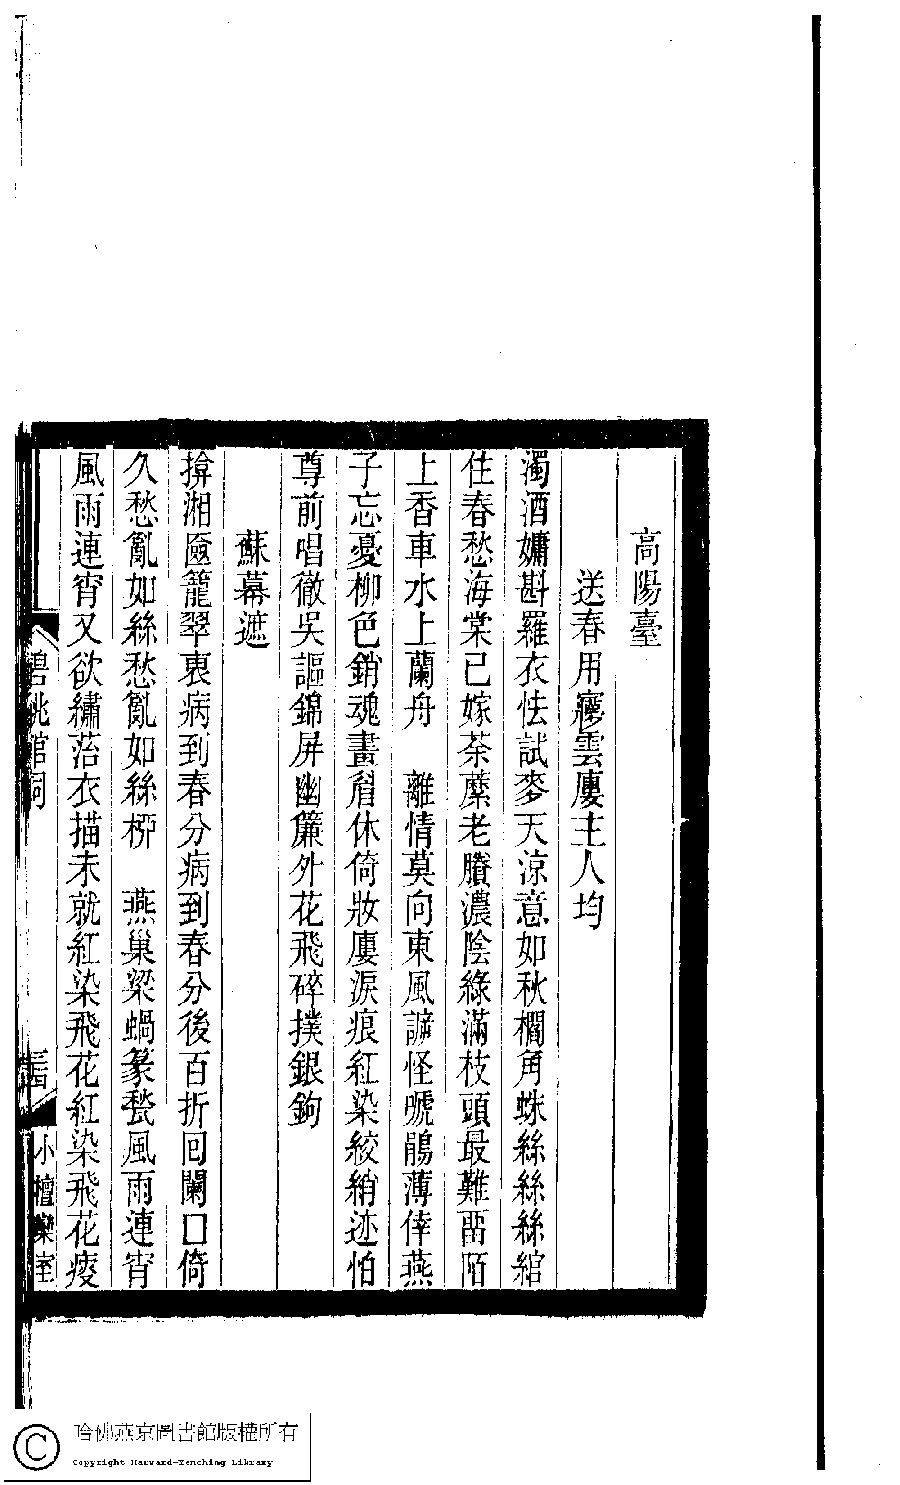 高陽臺
送春用瘦雲廔主人均
濁酒慵斟羅衣怯試麥天涼意如秋櫚角蛛絲絲絲綰
住春愁海棠已嫁荼蘼老賸濃陰綠滿枝頭最難畱陌
上香車水上蘭舟　離情莫向東風謔怪啼鵑薄倖燕
子忘憂柳色銷魂畫眉休倚妝廔淚痕紅染絞綃迹怕
尊前唱徹吳謳錦屏幽簾外花飛碎撲銀鉤
蘇幕遮
揜湘匳籠翠裏病到春分病到春分後百折回闌□倚
久愁亂如絲愁亂如絲桺　燕巢梁蝸篆甃風雨連宵
風雨連宵又欲繡菭衣描未就紅染飛花紅染飛花瘦
碧桃館詞
三
小檀欒室
哈佛燕京圖書館版權所有
Copyright Harvard-Yenching Library